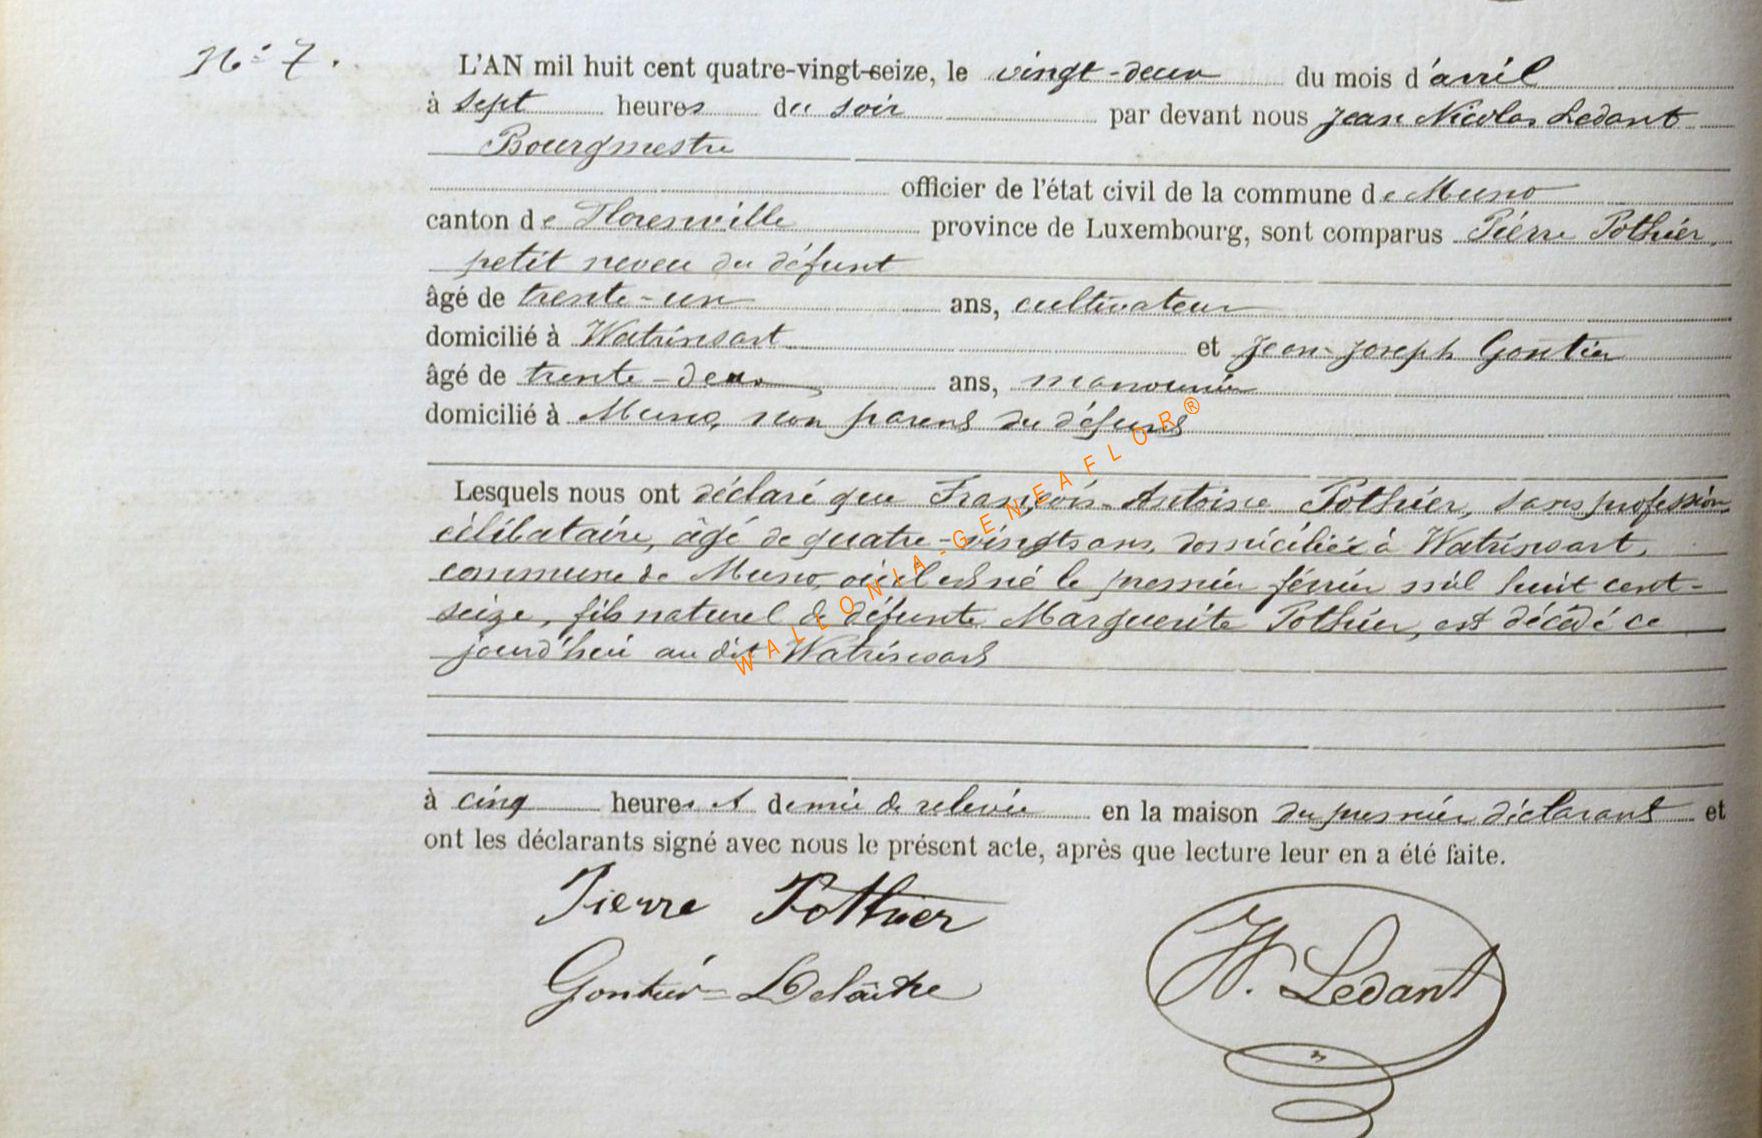 N° 7.
L'AN mil huit cent quatre-vingt-seize, le vingt-deux du mois d'avril
à sept heures du soir par devant nous Jean Nicolas Ledant
Bourgmestre
officier de l'état civil de la commune de Muno
canton de Florenville province de Luxembourg, sont comparus Pierre Pothier,
petit neveu du défunt
âgé de trente-un ans, cultivateur
domicilié à Watrinsart et Jean-Joseph Gontier
âgé de trente-deux ans, manouvrier
domicilié à Muno, non parent du défunt
Lesquels nous ont déclaré que François-Antoine Pothier, sans profession
célibataire, âgé de quatre-vingts ans, domicilié à Watrinsart,
commune de Muno, où il est né le premier février mil huit cent-
seize, fils naturel de défunte Marguerite Pothier, est décédé ce
jourd'hui au dit Watrinsart
à cinq heures et demie de relevée en la maison du premier déclarant et
ont les déclarants signé avec nous le présent acte, après que lecture leur en a été faite.
Pierre Pothier
Gontier-Delaître
N. Ledant
WALLONIA-GENEAFLOR®